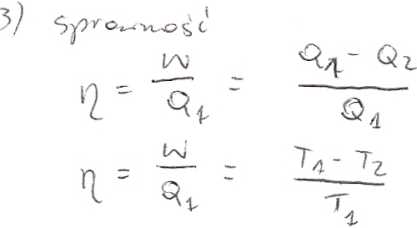 3) sprawność
η = W/Q₁ = (Q₁ - Q₂)/Q₁
η = W/Q₁ = (T₁ - T₂)/T₁